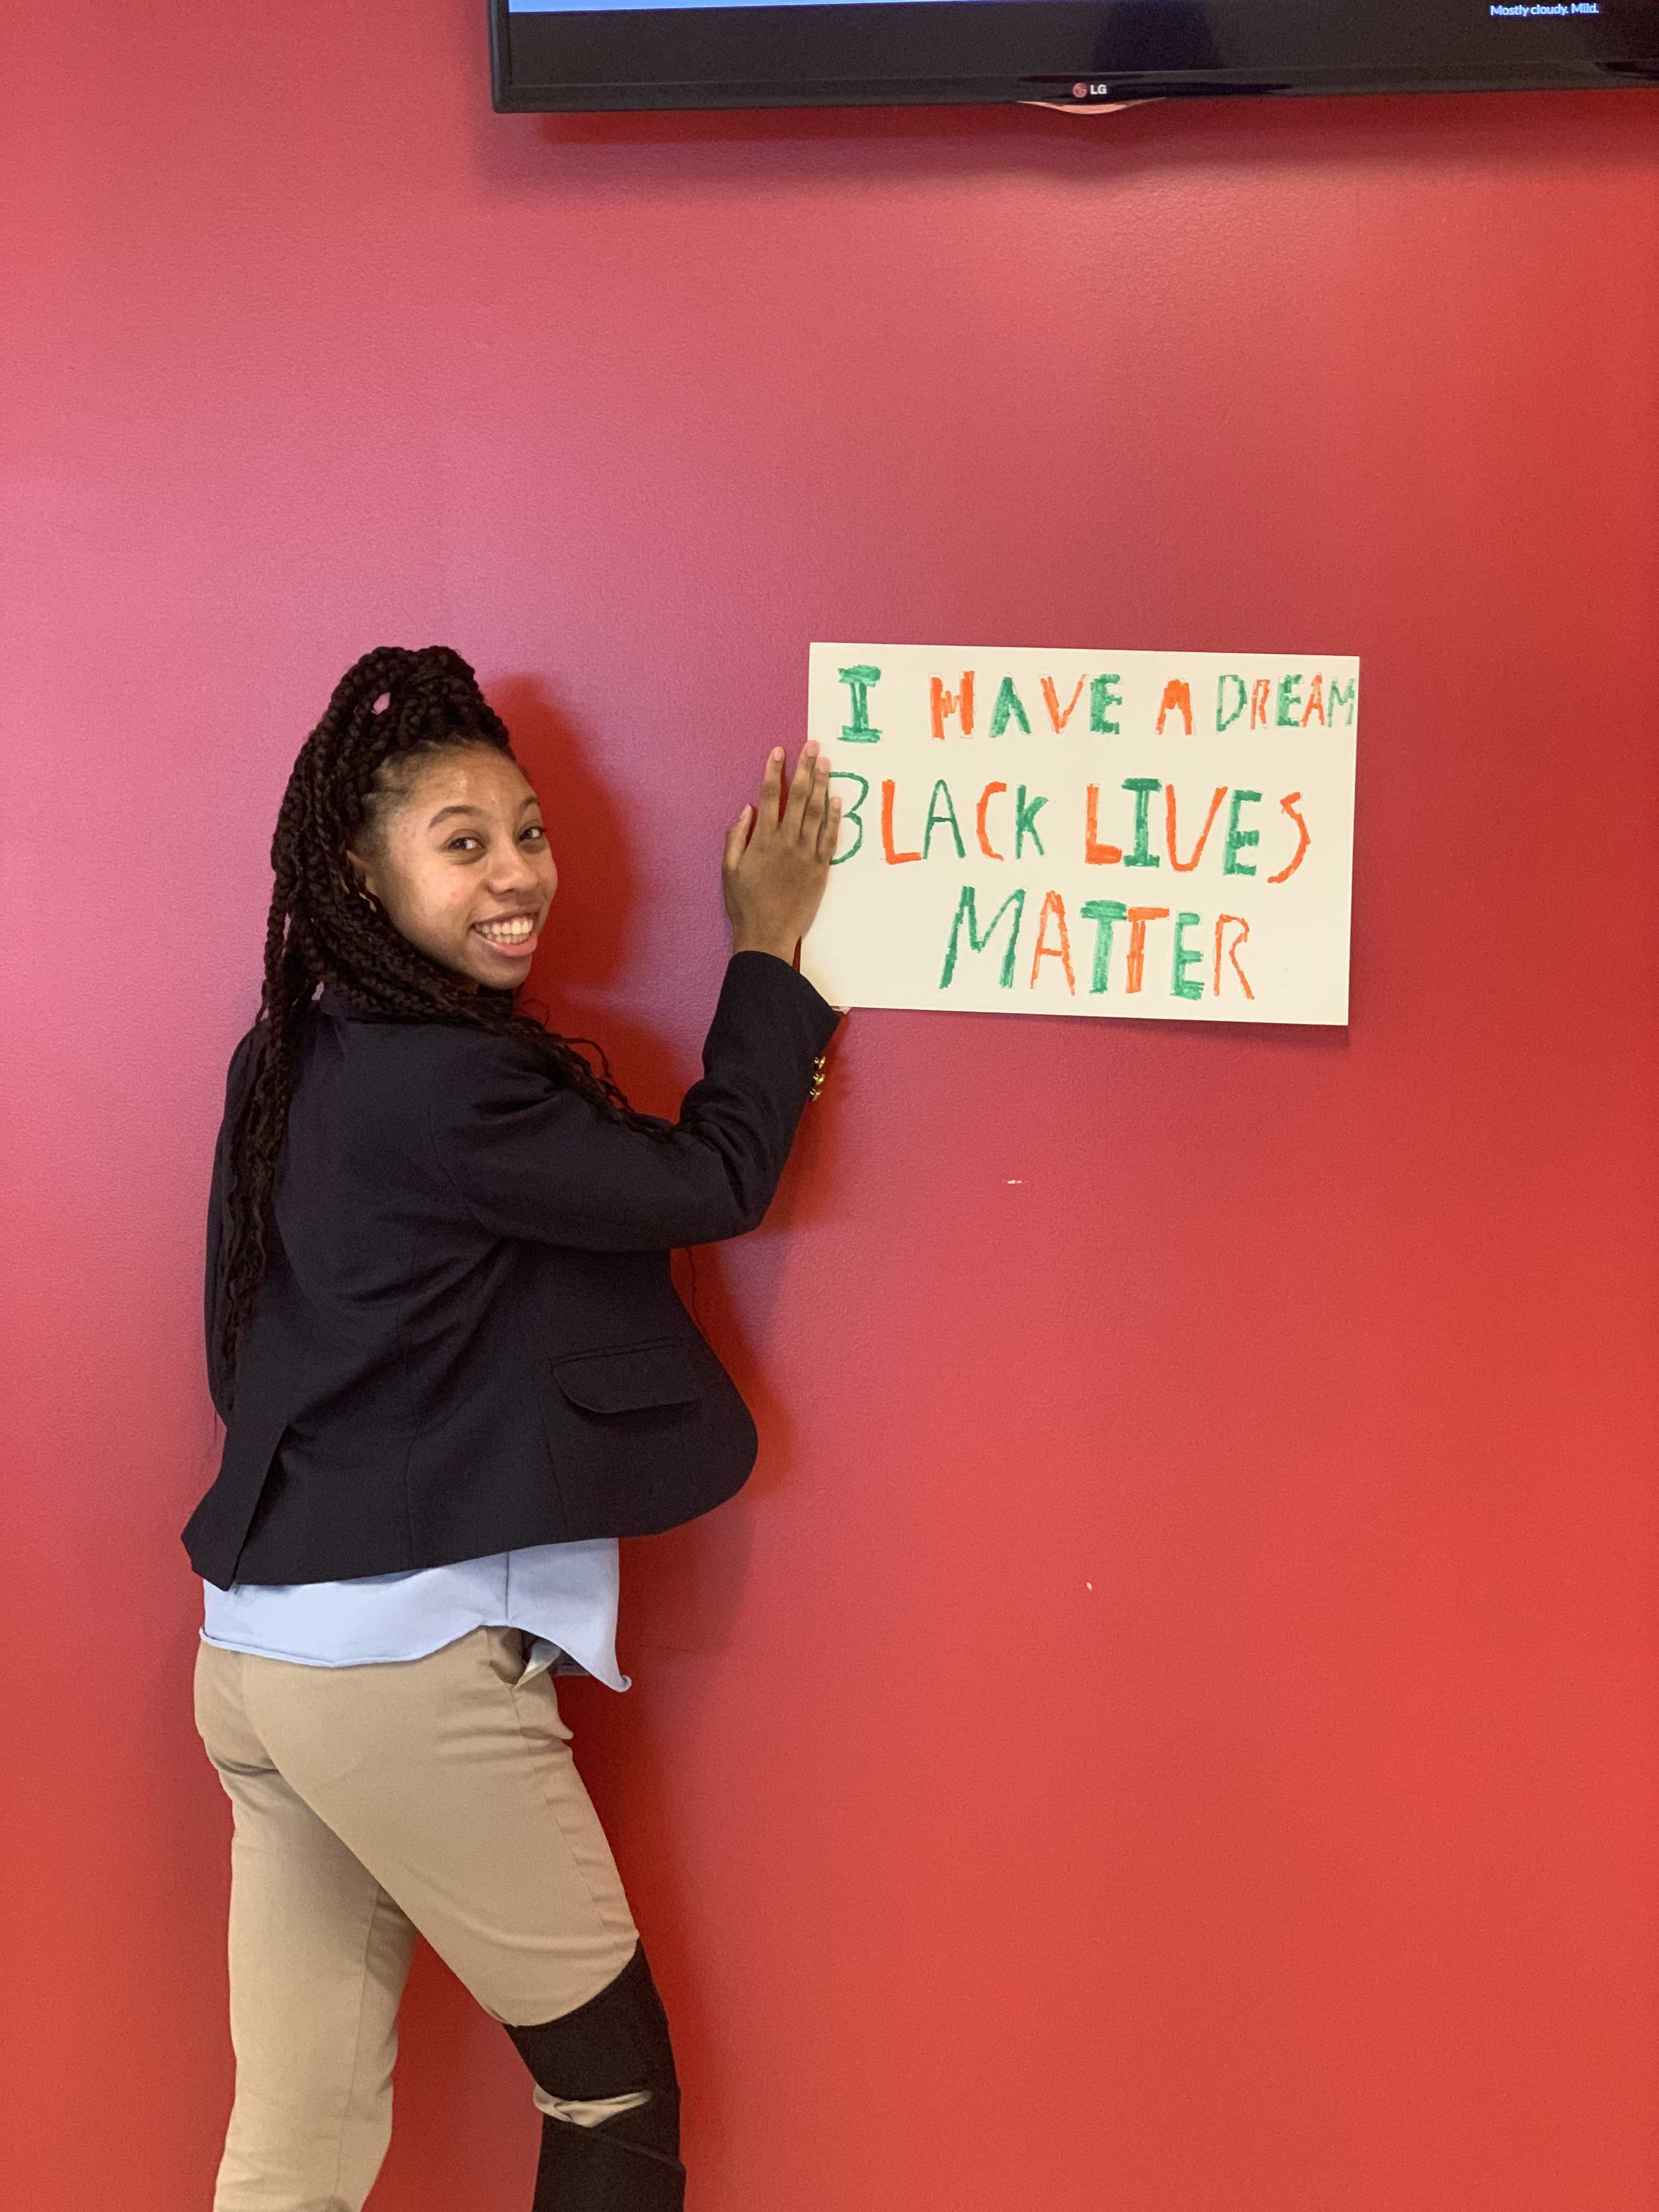 Mostly cloudy. Mild.
LG
I HAVE A DREAM
BLACK LIVES
MATTER